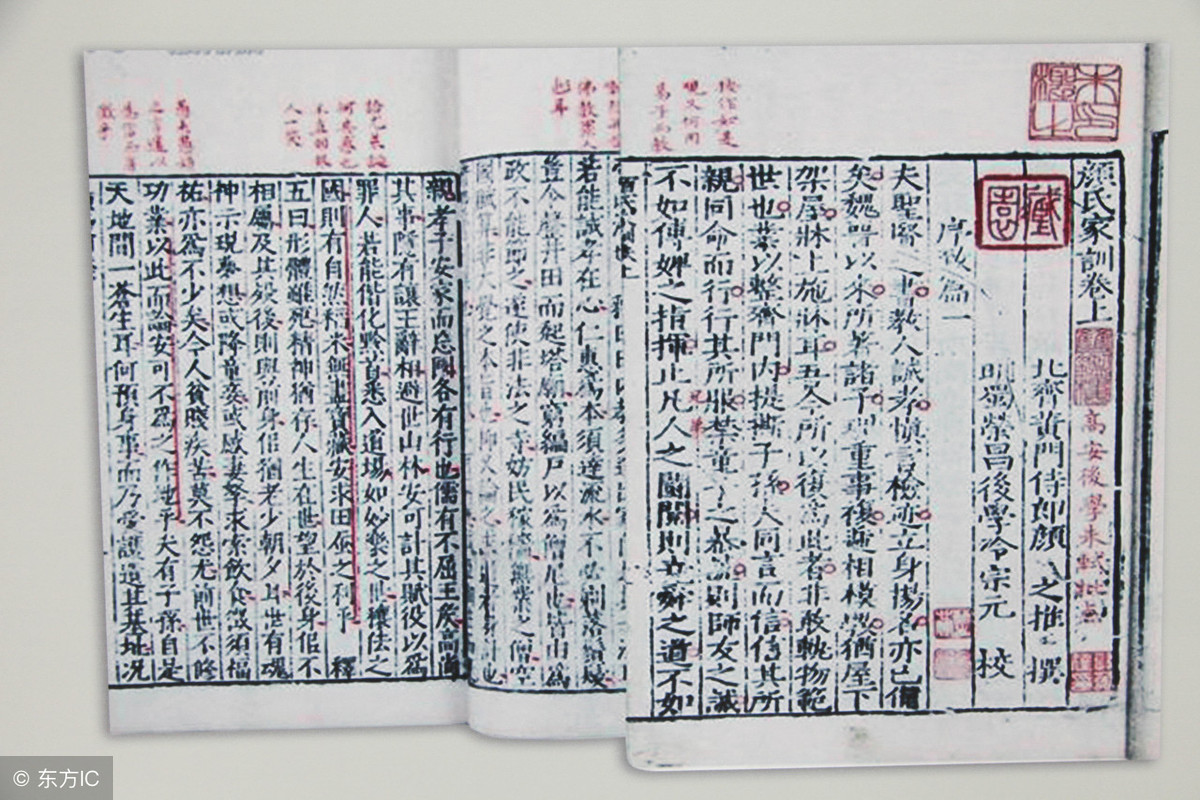 顏氏家訓卷上
高安後學朱軾批点
北齊黃門侍郎顏之推 撰
明蜀榮昌後學冷宗元 校
藏園
序致篇一
夫聖賢之書教人誠孝慎言檢迹立身揚名亦已備
矣魏晉以來所著諸子理重事複遞相模斆猶屋下
架屋牀上施牀耳吾今所以復爲此者非敢軌物範
世也業以整齊門內提撕子孫夫同言而信信其所
親同命而行行其所服禁童子之暴謔則師友之誡
不如傅婢之指揮止凡人之鬭鬩則堯舜之道不如
兄弟
彼作如是
觀又何用
易子而教
若能誠孝在心仁惠爲本須達流水不必剃落鬚髮
豈令罄井田而起塔廟窮編戶以爲僧尼也皆由爲
政不能節之遂使非法之寺妨民稼穡無業之僧空
國賦算非大覺之本旨也抑又論之
親孝子安家而忘國各有行也儒有不屈王侯高尚
其事隱有讓王辭相避世山林安可計其賦役以爲
罪人若能偕化黔首悉入道場如妙樂之世禳佉之
國則有自然稻米無盡寶藏安求田蚕之利乎 釋
五曰形體雖死精神猶存人生在世望於後身佀不
相屬及其歿後則與前身佀猶老少朝夕耳世有魂
神示現夢想或降童妾或感妻孥求索飲食徵須福
祐亦爲不少矣今人貧賤疾苦莫不怨尤前世不修
功業以此而論安可不爲之作地乎夫有子孫自是
天地間一蒼生耳何預身事而乃愛護遺其基址况
© 东方IC